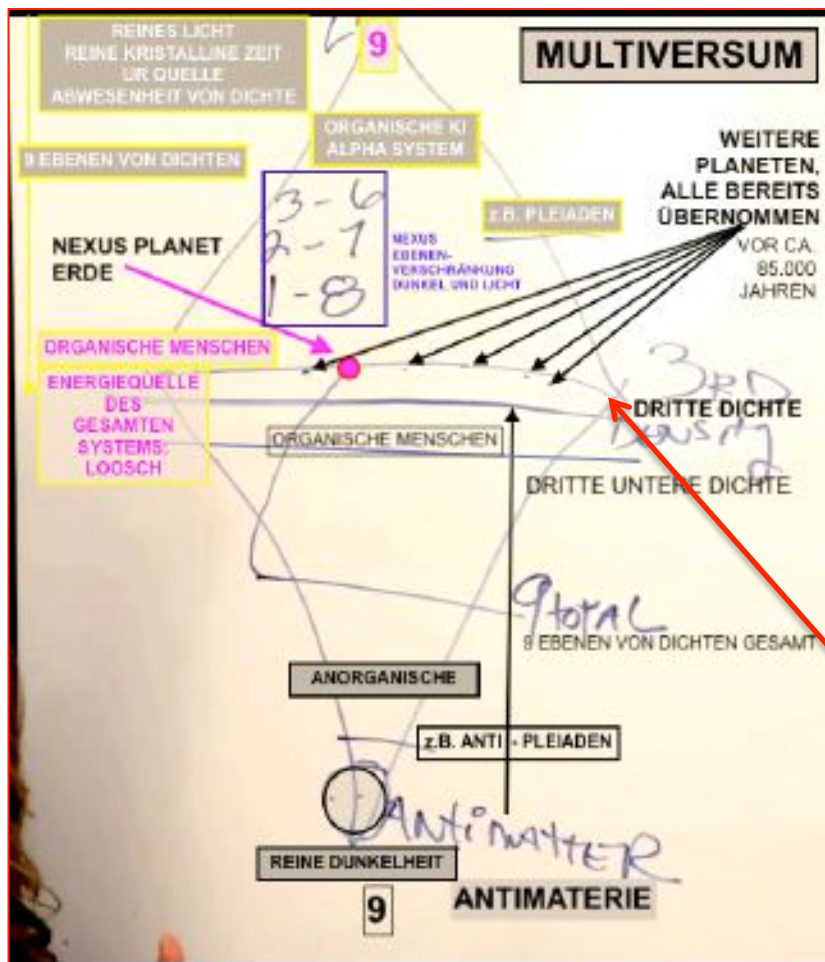 REINES LICHT
REINE KRISTALLINE ZEIT
UR QUELLE
ABWESENHEIT VON DICHTE
9
MULTIVERSUM
ORGANISCHE KI
ALPHA SYSTEM
9 EBENEN VON DICHTEN
WEITERE
PLANETEN,
ALLE BEREITS
ÜBERNOMMEN
VOR CA.
85.000
JAHREN
z.B. PLEIADEN
3-6
2-7
1-8
NEXUS
EBENEN-
VERSCHRÄNKUNG
DUNKEL UND LICHT
NEXUS PLANET
ERDE
ORGANISCHE MENSCHEN
ENERGIEQUELLE
DES
GESAMTEN
SYSTEMS:
LOOSCH
3RD
DRITTE DICHTE
Density
ORGANISCHE MENSCHEN
DRITTE UNTERE DICHTE
9 total
9 EBENEN VON DICHTEN GESAMT
ANORGANISCHE
z.B. ANTI - PLEIADEN
ANTIMATTER
REINE DUNKELHEIT
9
ANTIMATERIE